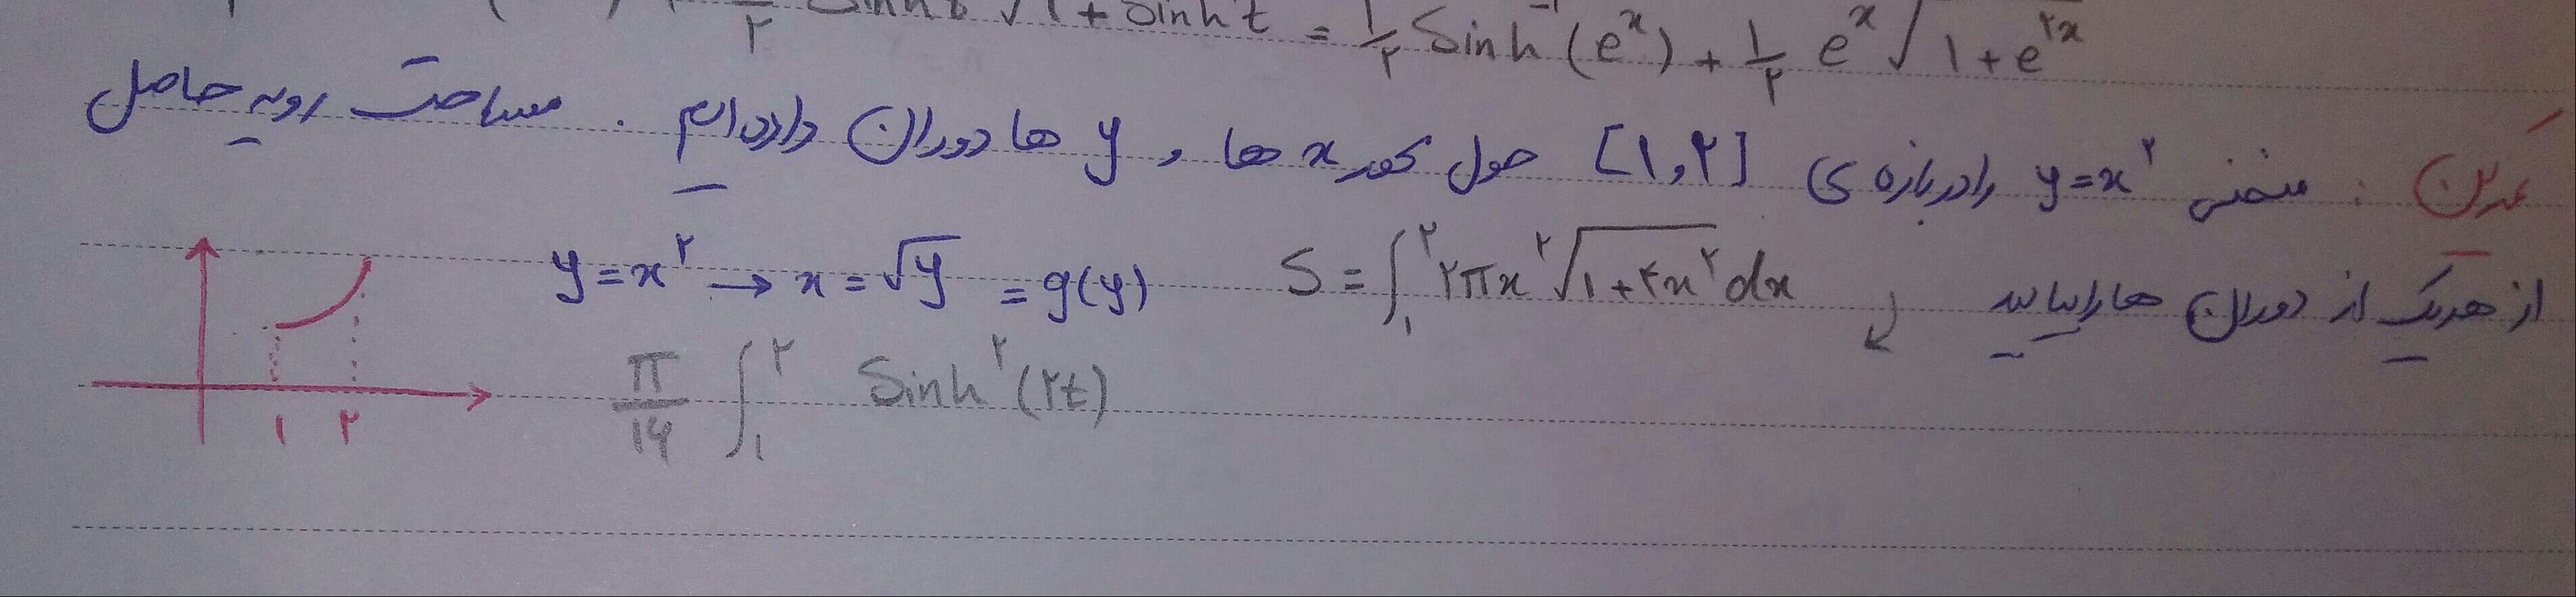 ۱/۲ Sinh⁻¹(eˣ) + ۱/۲ eˣ √۱+e²ˣ = √۱ + Sinh t
تمرین : منحنی y=x² را در بازه ی [۱,۲] حول محور x ها و y ها دوران داده ایم . مساحت رویه حاصل
از هر یک از دوران ها را بیابید
S = ∫₁² ۲πx² √۱+۴x² dx
y=x² → x=√y = g(y)
π/۱۶ ∫₁² Sinh²(۲t)
۱ ۲